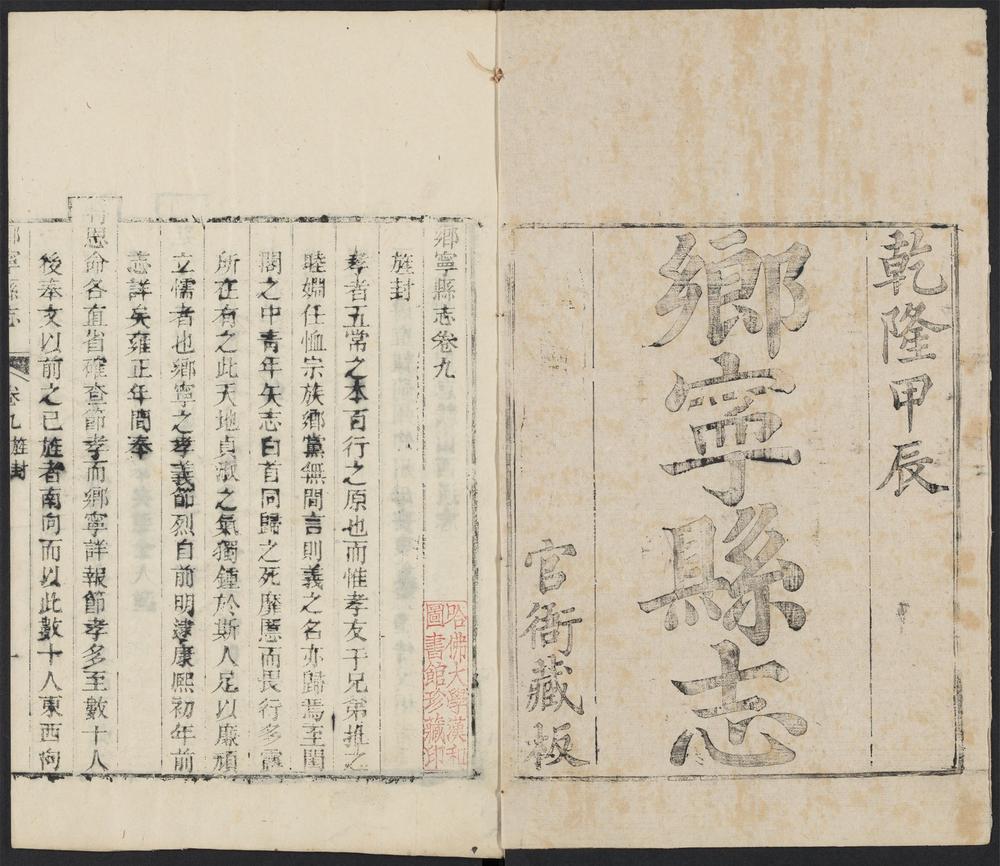 乾隆甲辰
鄉寧縣志
官衙藏板
鄉寧縣志卷九
旌封
孝者五常之本百行之原也而惟孝友于兄第推之
睦婣任恤宗族鄉黨無間言則義之名亦歸焉至閨
閣之中青年矢志白首同歸之死靡慝而畏行多露
所在有之此天地貞淑之氣獨鍾於斯人足以廉頑
立懦者也鄉寧之孝義節烈自前明逮康熙初年前
志詳矣雍正年間奉
恩命各直省確查節孝而鄉寧詳報節孝多至數十人
後奉文以前之已旌者南向而以此數十人東西向
鄉寧縣志
卷九旌封
一
哈佛大學漢和
圖書館珍藏印